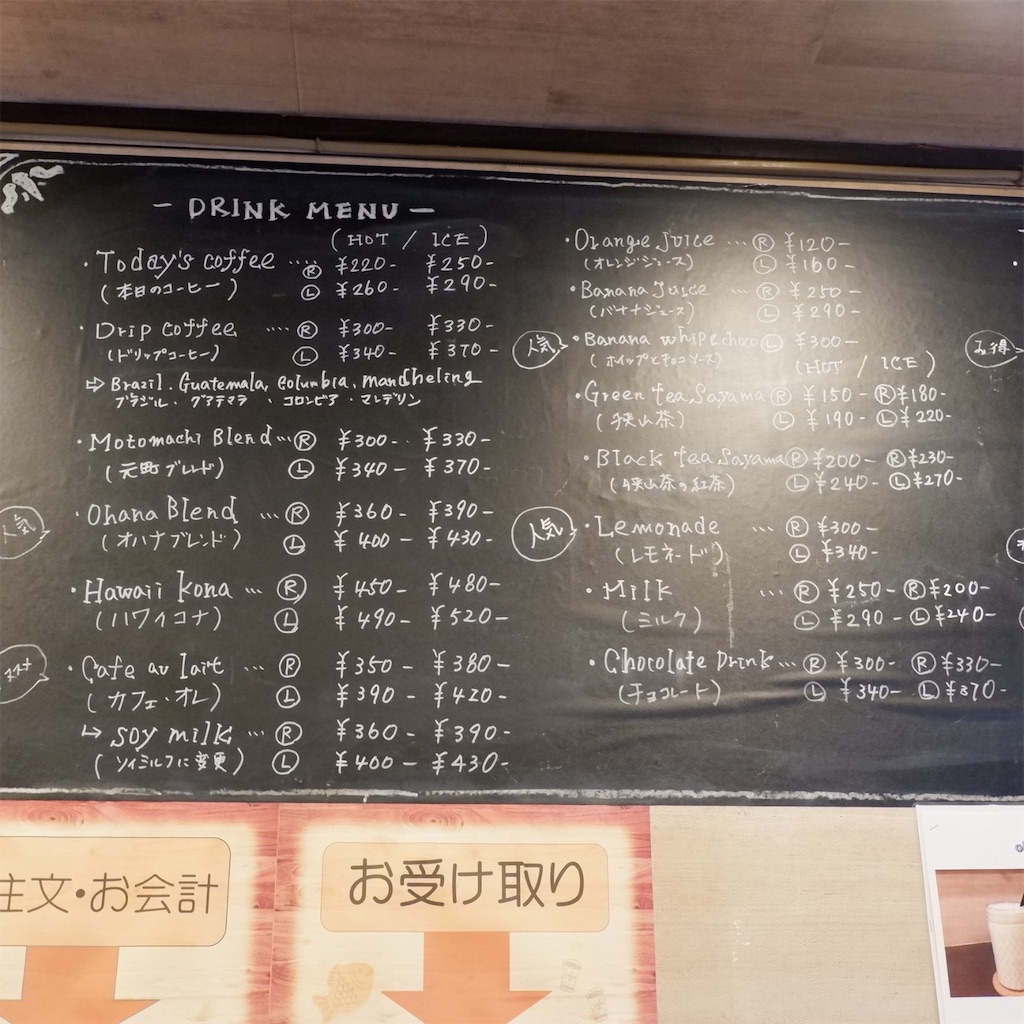 - DRINK MENU -
(HOT / ICE)
・Today's coffee ····· Ⓡ ¥220- ¥250-
(本日のコーヒー) Ⓛ ¥260- ¥290-
・Drip coffee ···· Ⓡ ¥300- ¥330-
(ドリップコーヒー) Ⓛ ¥340- ¥370-
⇨ Brazil. Guatemala, Columbia, mandheling
ブラジル・グアテマラ・コロンビア・マンデリン
・Motomachi Blend ··· Ⓡ ¥300- ¥330-
(元町ブレンド) Ⓛ ¥340- ¥370-
人気
・Ohana Blend ··· Ⓡ ¥360- ¥390-
(オハナブレンド) Ⓛ ¥400- ¥430-
・Hawaii kona ··· Ⓡ ¥450- ¥480-
(ハワイコナ) Ⓛ ¥490- ¥520-
・Cafe au lait ··· Ⓡ ¥350- ¥380-
(カフェ・オレ) Ⓛ ¥390- ¥420-
↳ Soy milk ··· Ⓡ ¥360- ¥390-
(ソイミルクに変更) Ⓛ ¥400- ¥430-
・Orange Juice ··· Ⓡ ¥120-
(オレンジジュース) Ⓛ ¥160-
・Banana Juice ··· Ⓡ ¥250-
(バナナジュース) Ⓛ ¥290-
人気
・Banana whipechoco Ⓛ ¥300-
(ホイップとチョコソース) (HOT / ICE)
・Green tea Sayama Ⓡ ¥150- Ⓡ ¥180-
(狭山茶) Ⓛ ¥190- Ⓛ ¥220-
・Black tea Sayama Ⓡ ¥200- Ⓡ ¥230-
(狭山茶の紅茶) Ⓛ ¥240- Ⓛ ¥270-
人気
・Lemonade ··· Ⓡ ¥300-
(レモネード) Ⓛ ¥340-
・Milk ··· Ⓡ ¥250- Ⓡ ¥200-
(ミルク) Ⓛ ¥290- Ⓛ ¥240-
・Chocolate Drink ··· Ⓡ ¥300- Ⓡ ¥330-
(チョコレート) Ⓛ ¥340- Ⓛ ¥370-
お得
注文・お会計
お受け取り